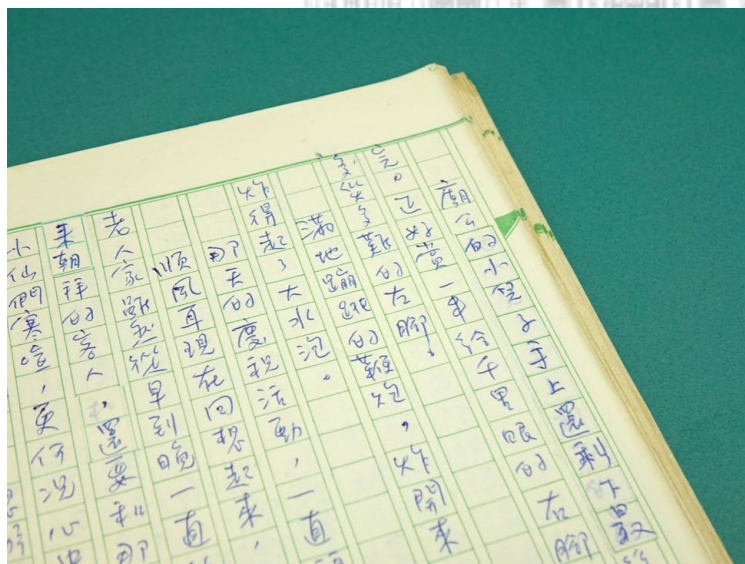 廟公的小子手上還剩下最
正好賞一串給千里眼的右腳
多災多難的左腳！
滿地蹦跳的鞭炮，炸開來
炸得起了大水泡。
那天的慶祝活動，一直
順風耳現在回想起來，
老人家雖然從早到晚一直
來朝拜的客人，還要和那
小仙們寒暄，更何況心中